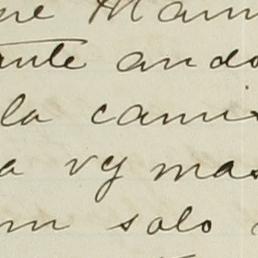 me Mam
ante ando
la camis
a vy mas
m solo